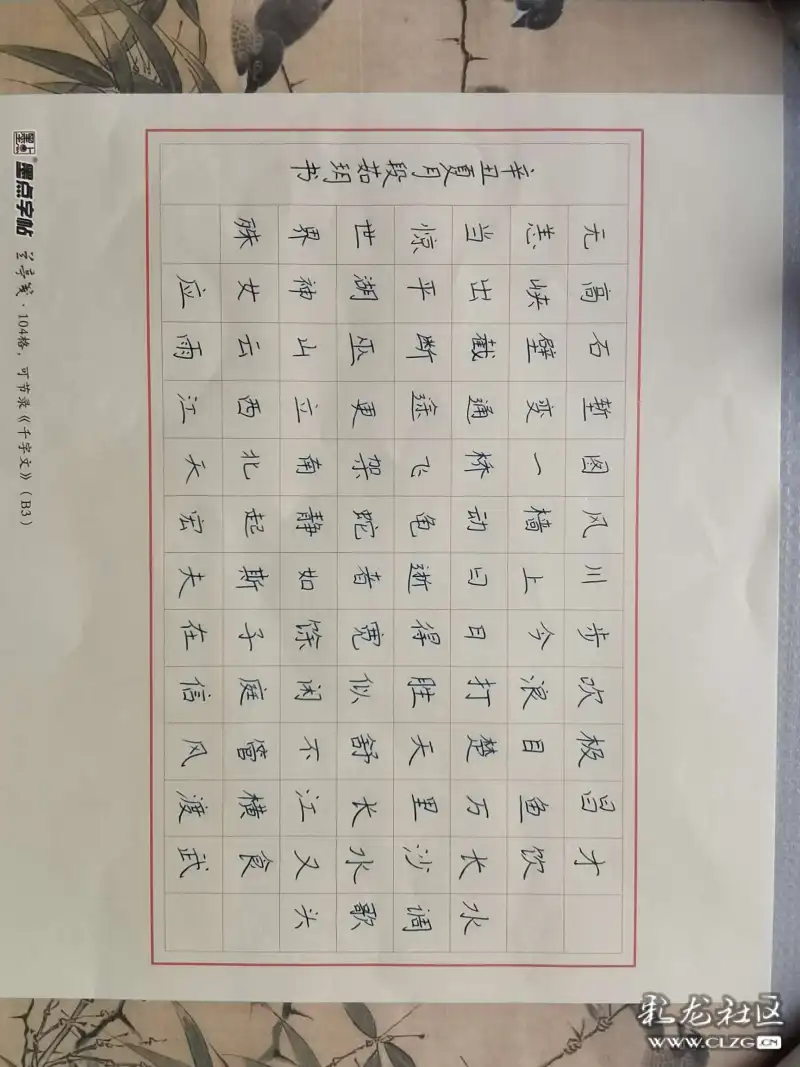 水调歌头
才饮长沙水又食武
昌鱼万里长江横渡
极目楚天舒不管风
吹浪打胜似闲庭信
步今日得宽馀子在
川上曰逝者如斯夫
风樯动龟蛇静起宏
图一桥飞架南北天
堑变通途更立西江
石壁截断巫山云雨
高峡出平湖神女应
无恙当惊世界殊
辛丑夏月段茹玥书
墨点字帖 兰亭笺·104格，可节录《千字文》（B3）
彩龙社区
WWW.CLZG.CN